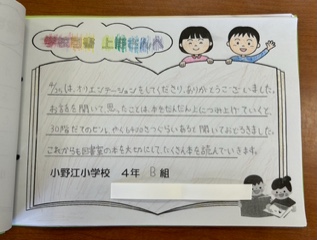 学校司書 上
4/25は、オリエンテーションをしてくださり、ありがとうございました。
お話を聞いて思ったことは、本をだんだん上につみ上げていくと、
30階だてのビル、やく400さつぐらいあると聞いておどろきました。
これからも図書室の本を大切にして、たくさん本を読んでいきます。
小野江小学校 4年 B組